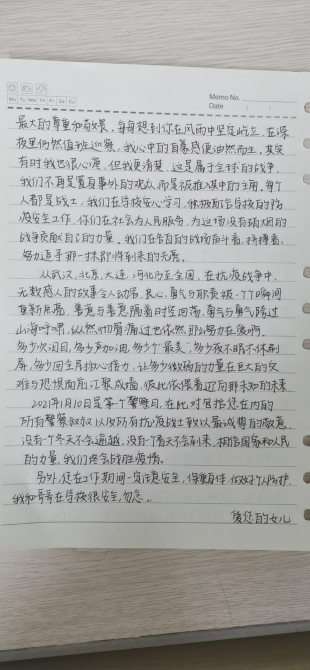 Memo No.
Date / /
Mo Tu We Th Fr Sa Su
最大的尊重和敬畏，每每想到你在风雨中坚定屹立，在深
夜里仍然值班巡察，我心中的自豪感便油然而生，其实
有时我也很心疼，但我更清楚，这是属于全球的战争，
我们不再是置身事外的观众，而是被推入其中的主角，每个
人都是战士，我们在学校安心学习，积极配合学校的防
疫安全工作，你们在社会为人民服务，为这场没有硝烟的
战争贡献自己的力量，我们在各自的战场奋斗着，拼搏着，
努力追寻那一抹即将到来的光亮。
从武汉，北京，大连，河北乃至全国，在抗疫战争中，
无数感人的故事令人动容，良心，勇气与职责被一个个瞬间
重新点亮，善意与善意隔着时空回荡，勇气与勇气跨过
山海呼唤，纵然切肤痛过也依然那么努力在废啊，
多少次泪目，多少声加油，多少个“最美”，多少夜不眠不休刷
屏，多少回全民揪心接力，让多少微弱的力量在巨大的灾
难与恐惧面前汇聚成墙，彼此依偎着迎向那未知的未来
2021年1月10日是第一个警察日，在此对包括您在内的
所有警察叔叔以及所有抗疫战士致以最诚挚的敬意，
没有一个冬天不会逾越，没有一个春天不会到来，相信国家和人民
的力量，我们终会战胜疫情。
另外，您在工作期间一定注意安全，保重身体，做好个人防护
我和哥哥在学校很安全，勿念。
爱您的女儿